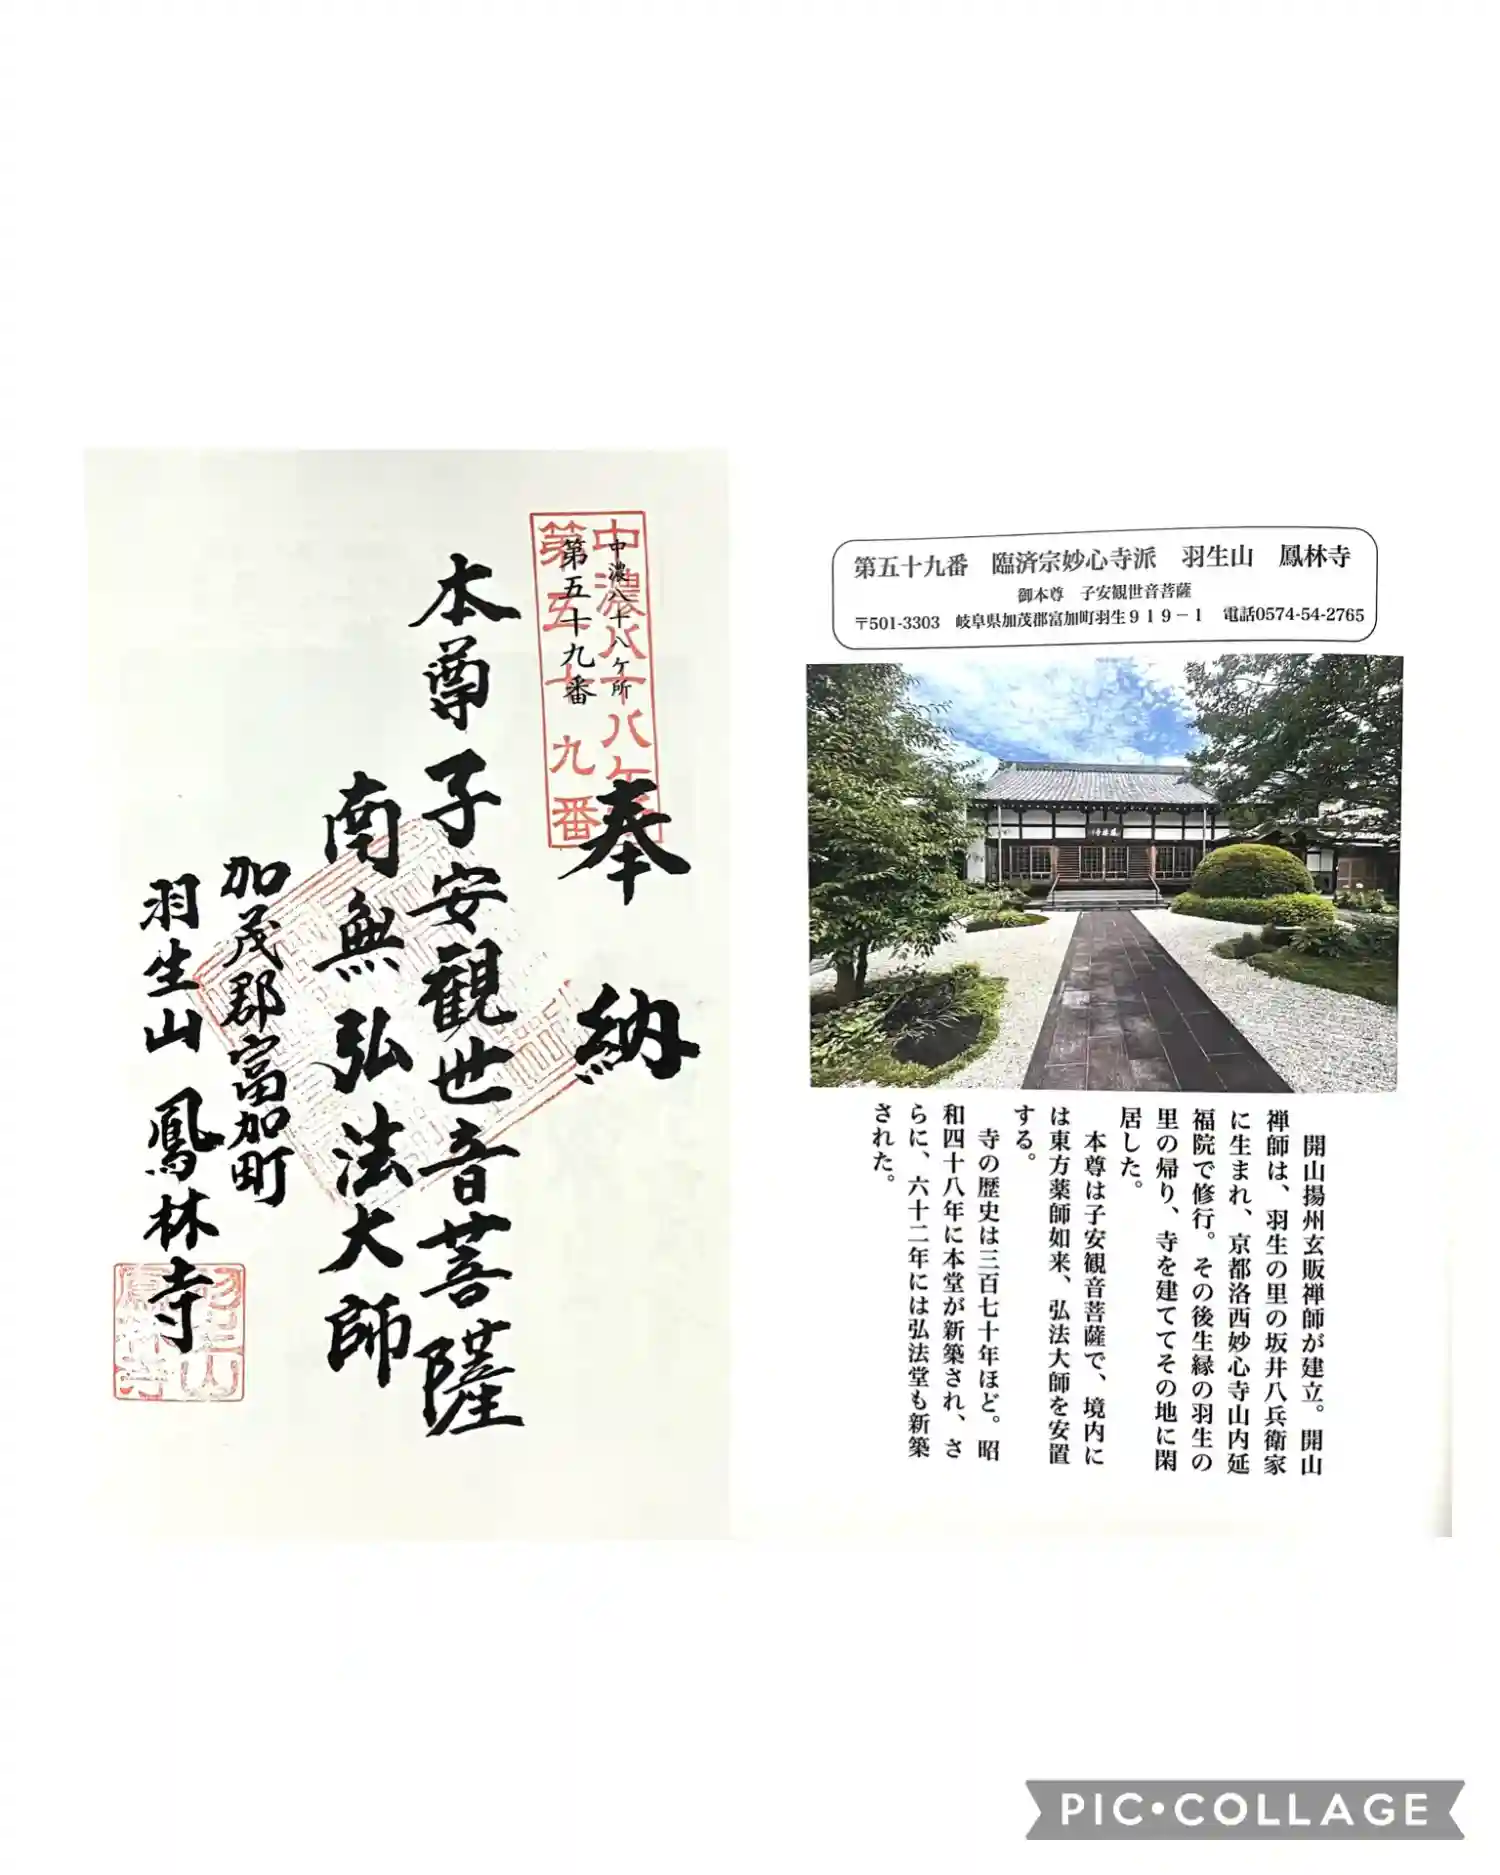 中濃八十八ケ所
第五十九番
中濃八十八ヶ所
第五十九番
奉納
本尊子安観世音菩薩
南無弘法大師
加茂郡富加町
羽生山鳳林寺
第五十九番　臨済宗妙心寺派　羽生山　鳳林寺
御本尊　子安観世音菩薩
〒501-3303　岐阜県加茂郡富加町羽生９１９－１　電話0574-54-2765
鳳林寺
開山揚州玄販禅師が建立。開山
禅師は、羽生の里の坂井八兵衛家
に生まれ、京都洛西妙心寺山内延
福院で修行。その後生縁の羽生の
里の帰り、寺を建ててその地に閑
居した。
本尊は子安観音菩薩で、境内に
は東方薬師如来、弘法大師を安置
する。
寺の歴史は三百七十年ほど。昭
和四十八年に本堂が新築され、さ
らに、六十二年には弘法堂も新築
された。
PIC•COLLAGE